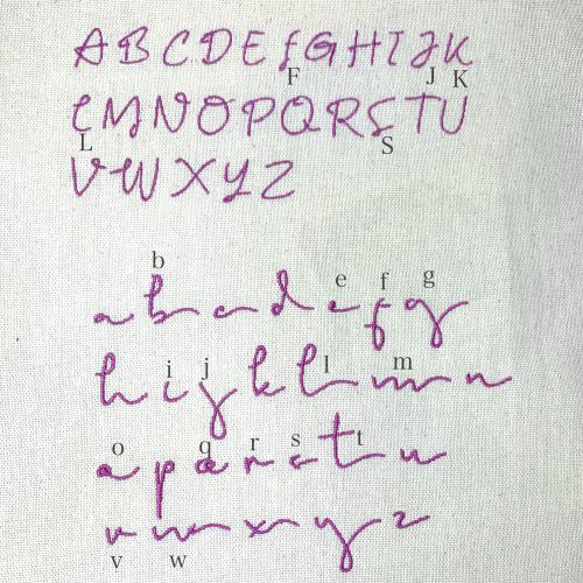 ABCDEfGHIJK
F J K
LMNOPQRSTU
L S
VWXYZ
b e f g
abcdefg
i j l m
hijklmn
o q r s t
opqrstu
vwxyz
v w